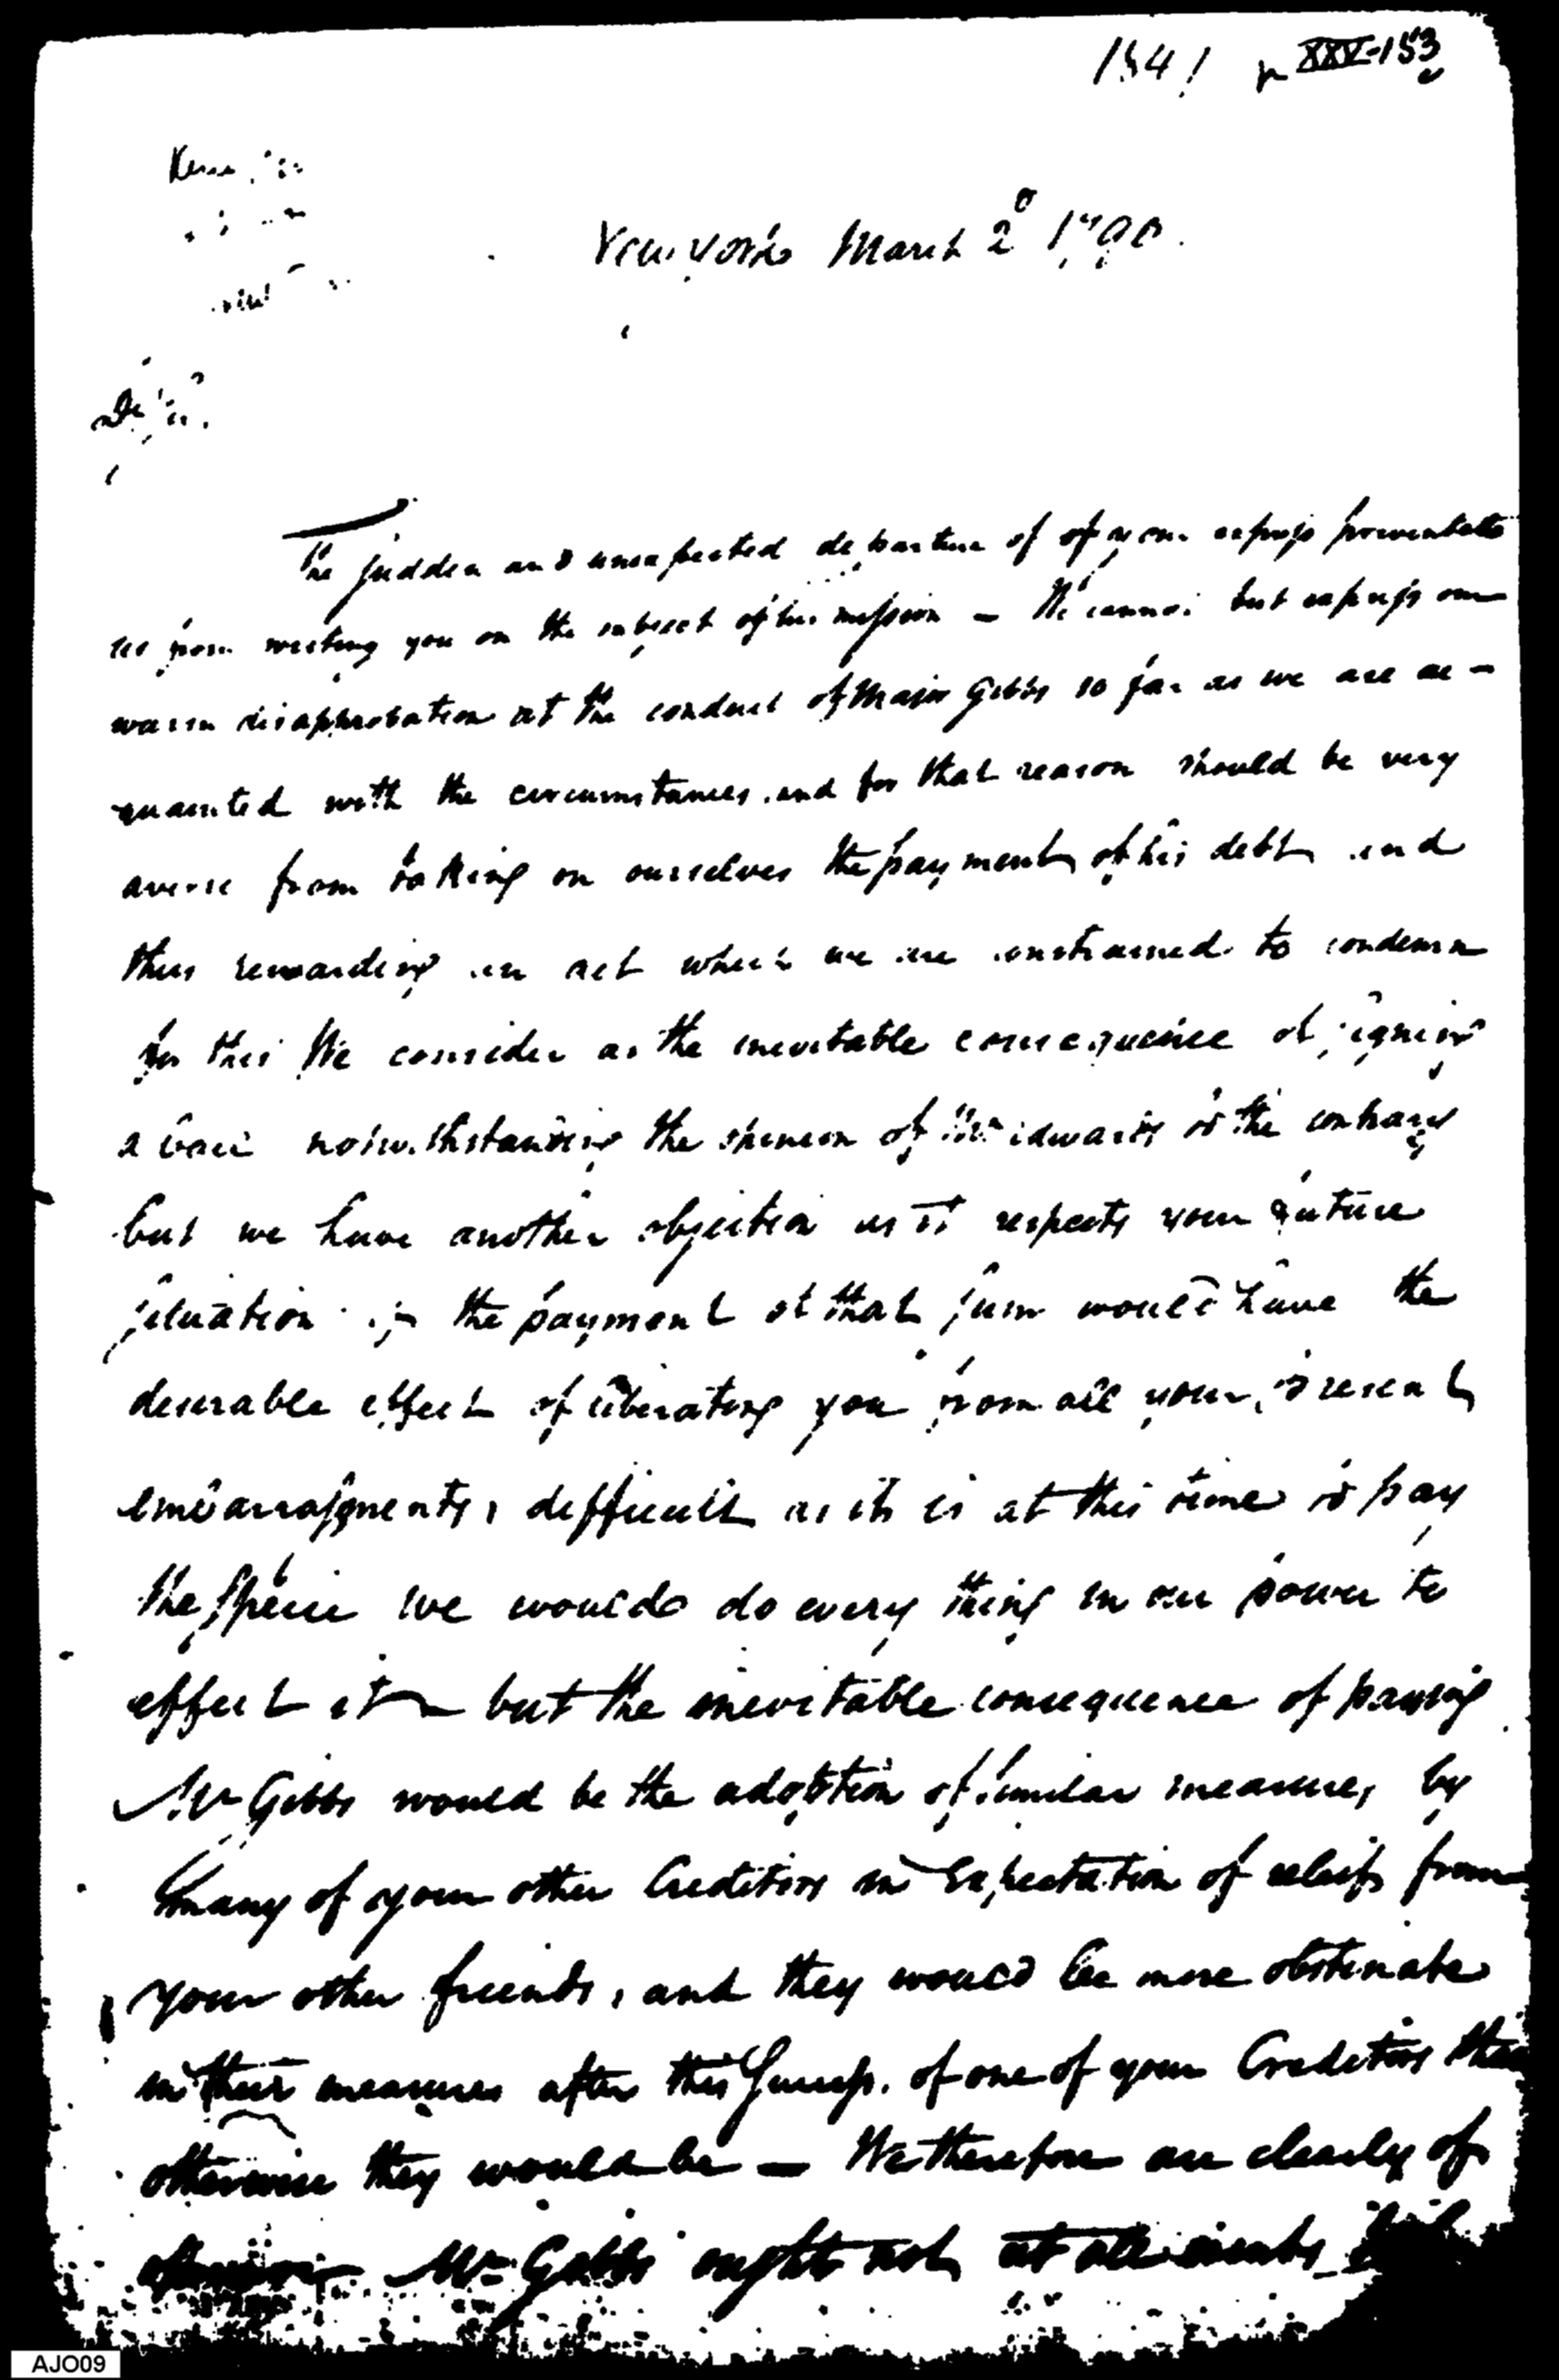 1541 XXV-153
New York March 2d 1790.
The sudden and unexpected departure of of your express prevented
us from writing you on the subject of his mission – We cannot but express our
warm disapprobation at the conduct of Major Gibbs so far as we are ac-
quainted with the circumstances, and for that reason should be very
averse from taking on ourselves the payment of his debt and
thus rewarding an act which we are constrained to condemn
for this We consider as the inevitable consequence of signing
a notwithstanding the opinion of Mr Edwards to the contrary
but we have another objection as it respects your future
situation. if the payment of that sum would have the
desirable effect of liberating you from all your present
embarrassments, difficult as it is at this time to pay
the specie we would do every thing in our power to
effect it – but the inevitable consequence of paying
Mr Gibbs would be the adoption of similar measures by
many of your other Creditors in Expectation of relief from
your other friends, and they would be more obstinate
in their measures after this of one of your Creditors than
otherwise they would be – We therefore are clearly of
opinion Mr Gibbs ought not at all events
AJO09